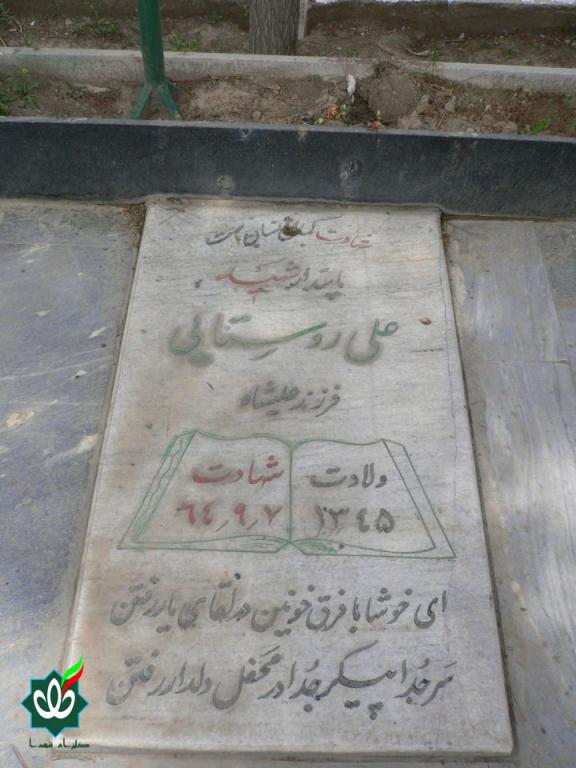 شهادت کمال انسان است
پاسدار شهید
علی روستایی
فرزند علیشاه
ولادت
۱۳۴۵
شهادت
۶۴٫۹٫۷
ای خوشا با فرق خونین در لقای یار رفتن
سر جدا پیکر جدا در محفل دلدار رفتن
گلزار شهدا